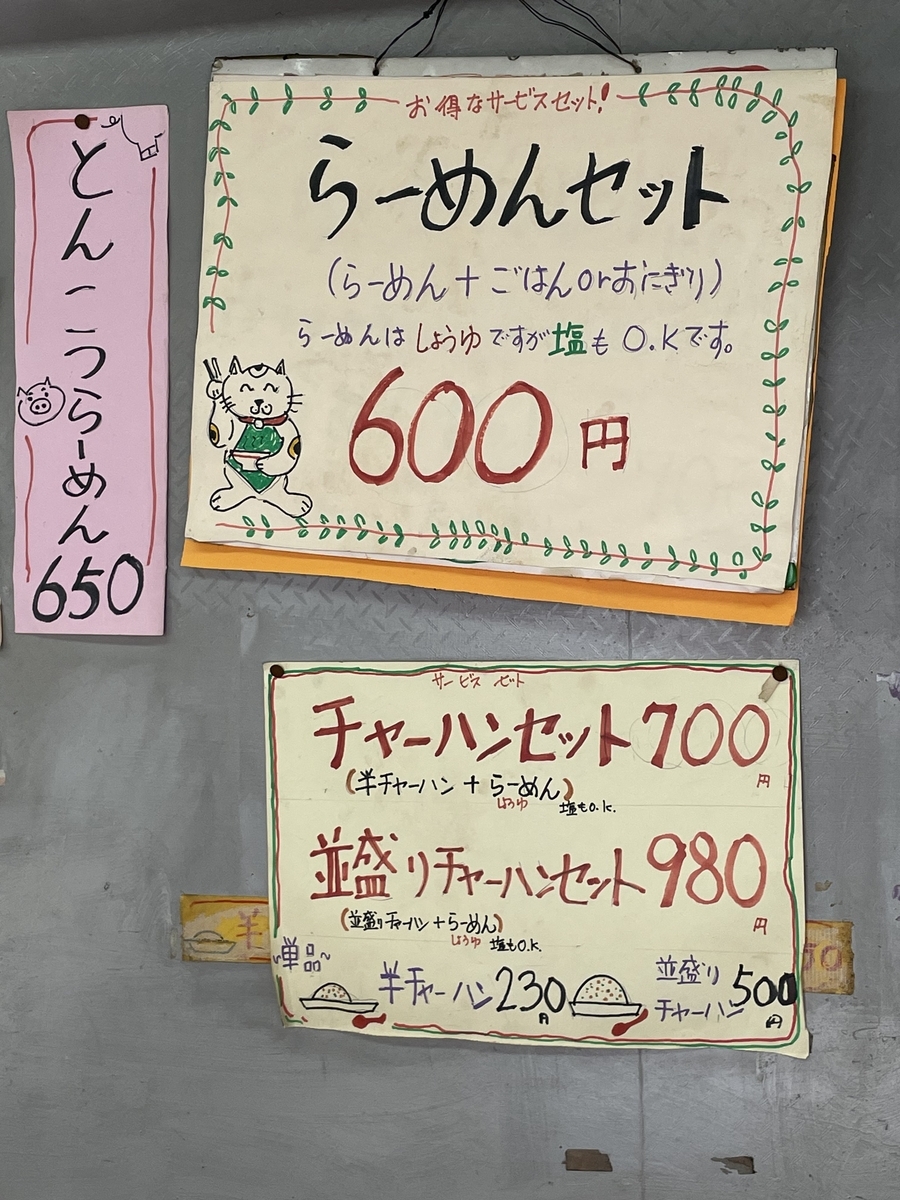 とんこつらーめん
650
お得なサービスセット!
らーめんセット
(らーめん+ごはんorおにぎり)
らーめんはしょうゆですが塩もO.Kです。
600円
サービスセット
チャーハンセット700円
(半チャーハン+らーめん)
しょうゆ 塩もO.K.
並盛りチャーハンセット980円
(並盛りチャーハン+らーめん)
しょうゆ 塩もO.K.
~単品~
半チャーハン230円
並盛り
チャーハン500円
半
50